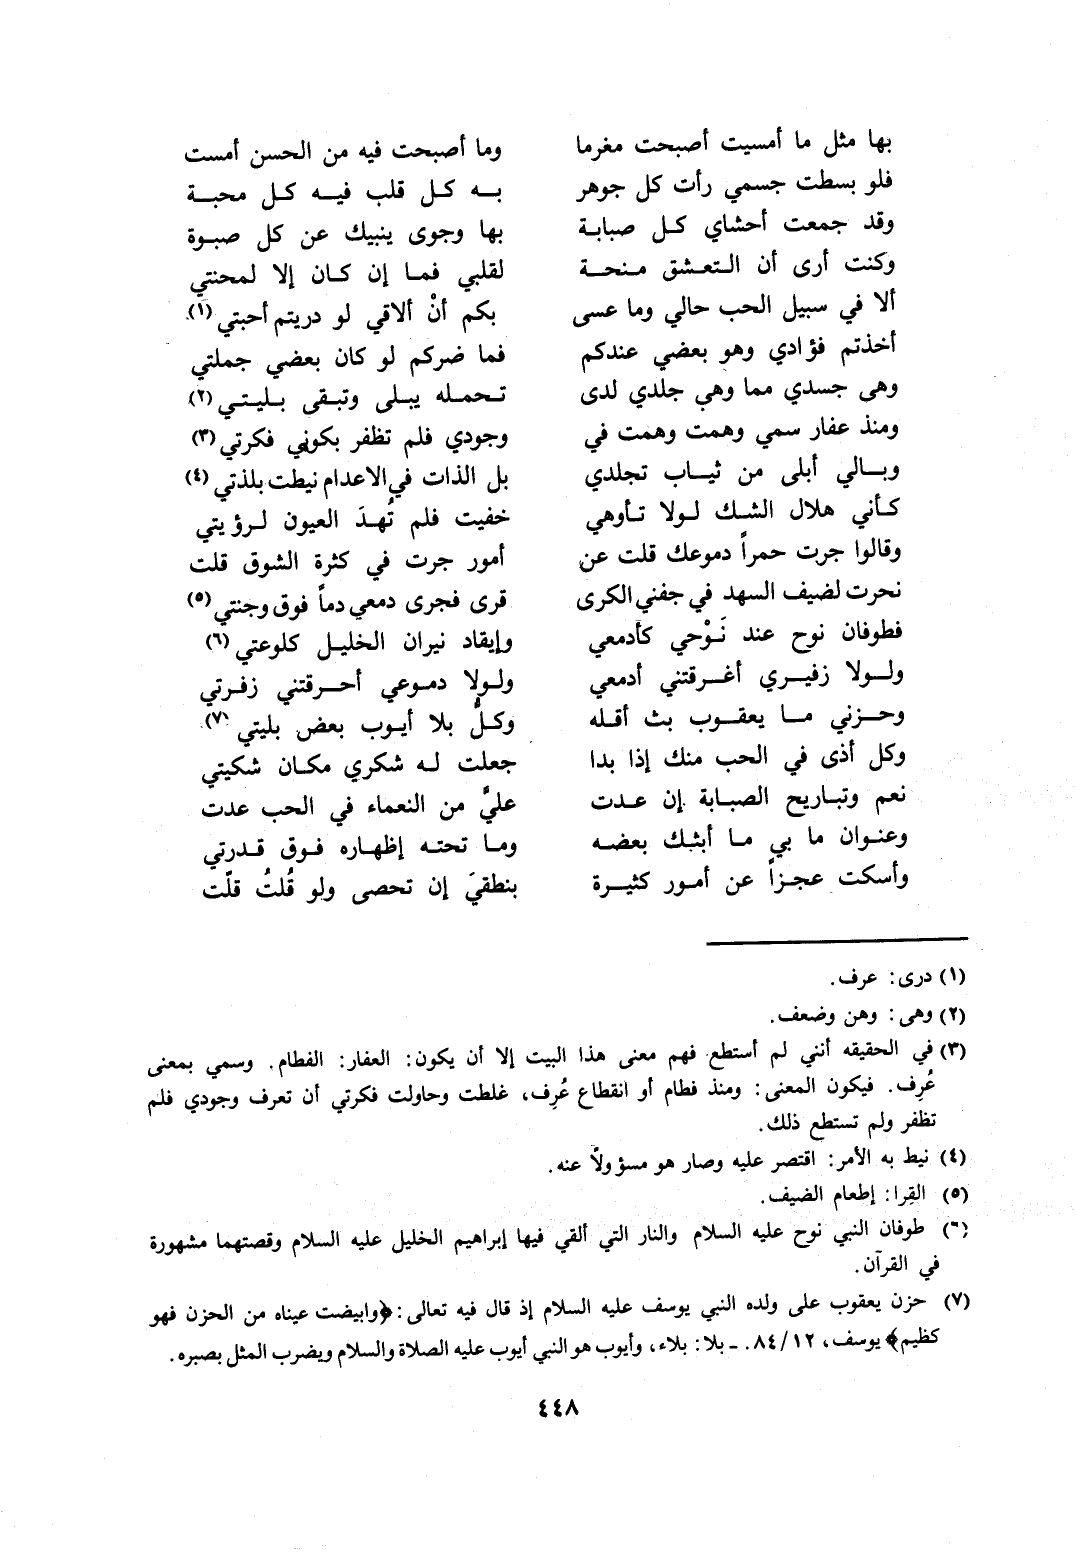 بها مثل ما أمسيت أصبحت مغرما وما أصبحت فيه من الحسن أمست
فلو بسطت جسمي رأت كل جوهر به كل قلب فيه كل محبة
وقد جمعت أحشاي كل صبابة بها وجوى ينبيك عن كل صبوة
وكنت أرى أن التعشق منحة لقلبي فما إن كان إلا لمحنتي
ألا في سبيل الحب حالي وما عسى بكم أنْ ألاقي لو دريتم أحبتي (١)
أخذتم فؤادي وهو بعضي عندكم فما ضركم لو كان بعضي جملتي
وهى جسدي مما وهي جلدي لدى تحمله يبلى وتبقى بليتي (٢)
ومنذ عفار سمي وهمت وهمت في وجودي فلم تظفر بكوني فكرتي (٣)
وبالي أبلى من ثياب تجلدي بل الذات في الاعدام نيطت بلذتي (٤)
كأني هلال الشك لولا تأوهي خفيت فلم تُهدَ العيون لرؤيتي
وقالوا جرت حمراً دموعك قلت عن أمور جرت في كثرة الشوق قلت
نحرت لضيف السهد في جفني الكرى قرى فجرى دمعي دماً فوق وجنتي (٥)
فطوفان نوح عند نَوْحي كأدمعي وإيقاد نيران الخليل كلوعتي (٦)
ولولا زفيري أغرقتني أدمعي ولولا دموعي أحرقتني زفرتي
وحزني ما يعقوب بث أقله وكلُّ بلا أيوب بعض بليتي (٧)
وكل أذى في الحب منك إذا بدا جعلت له شكري مكان شكيتي
نعم وتباريح الصبابة إن عدت عليَّ من النعماء في الحب عدت
وعنوان ما بي ما أبثك بعضه وما تحته إظهاره فوق قدرتي
وأسكت عجزاً عن أمور كثيرة بنطقيَ إن تحصى ولو قُلتُ قلّت
(١) درى: عرف.
(٢) وهى: وهن وضعف.
(٣) في الحقيقه أنني لم أستطع فهم معنى هذا البيت إلا أن يكون: العفار: الفطام. وسمي بمعنى
عُرِف. فيكون المعنى: ومنذ فطام أو انقطاع عُرِف، غلطت وحاولت فكرتي أن تعرف وجودي فلم
تظفر ولم تستطع ذلك.
(٤) نيط به الأمر: اقتصر عليه وصار هو مسؤولاً عنه.
(٥) القِرا: إطعام الضيف.
(٦) طوفان النبي نوح عليه السلام والنار التي ألقي فيها إبراهيم الخليل عليه السلام وقصتهما مشهورة
في القرآن.
(٧) حزن يعقوب على ولده النبي يوسف عليه السلام إذ قال فيه تعالى: ﴿وابيضت عيناه من الحزن فهو
كظيم﴾ يوسف، ٨٤/١٢. ـ بلا: بلاء، وأيوب هو النبي أيوب عليه الصلاة والسلام ويضرب المثل بصبره.
٤٤٨